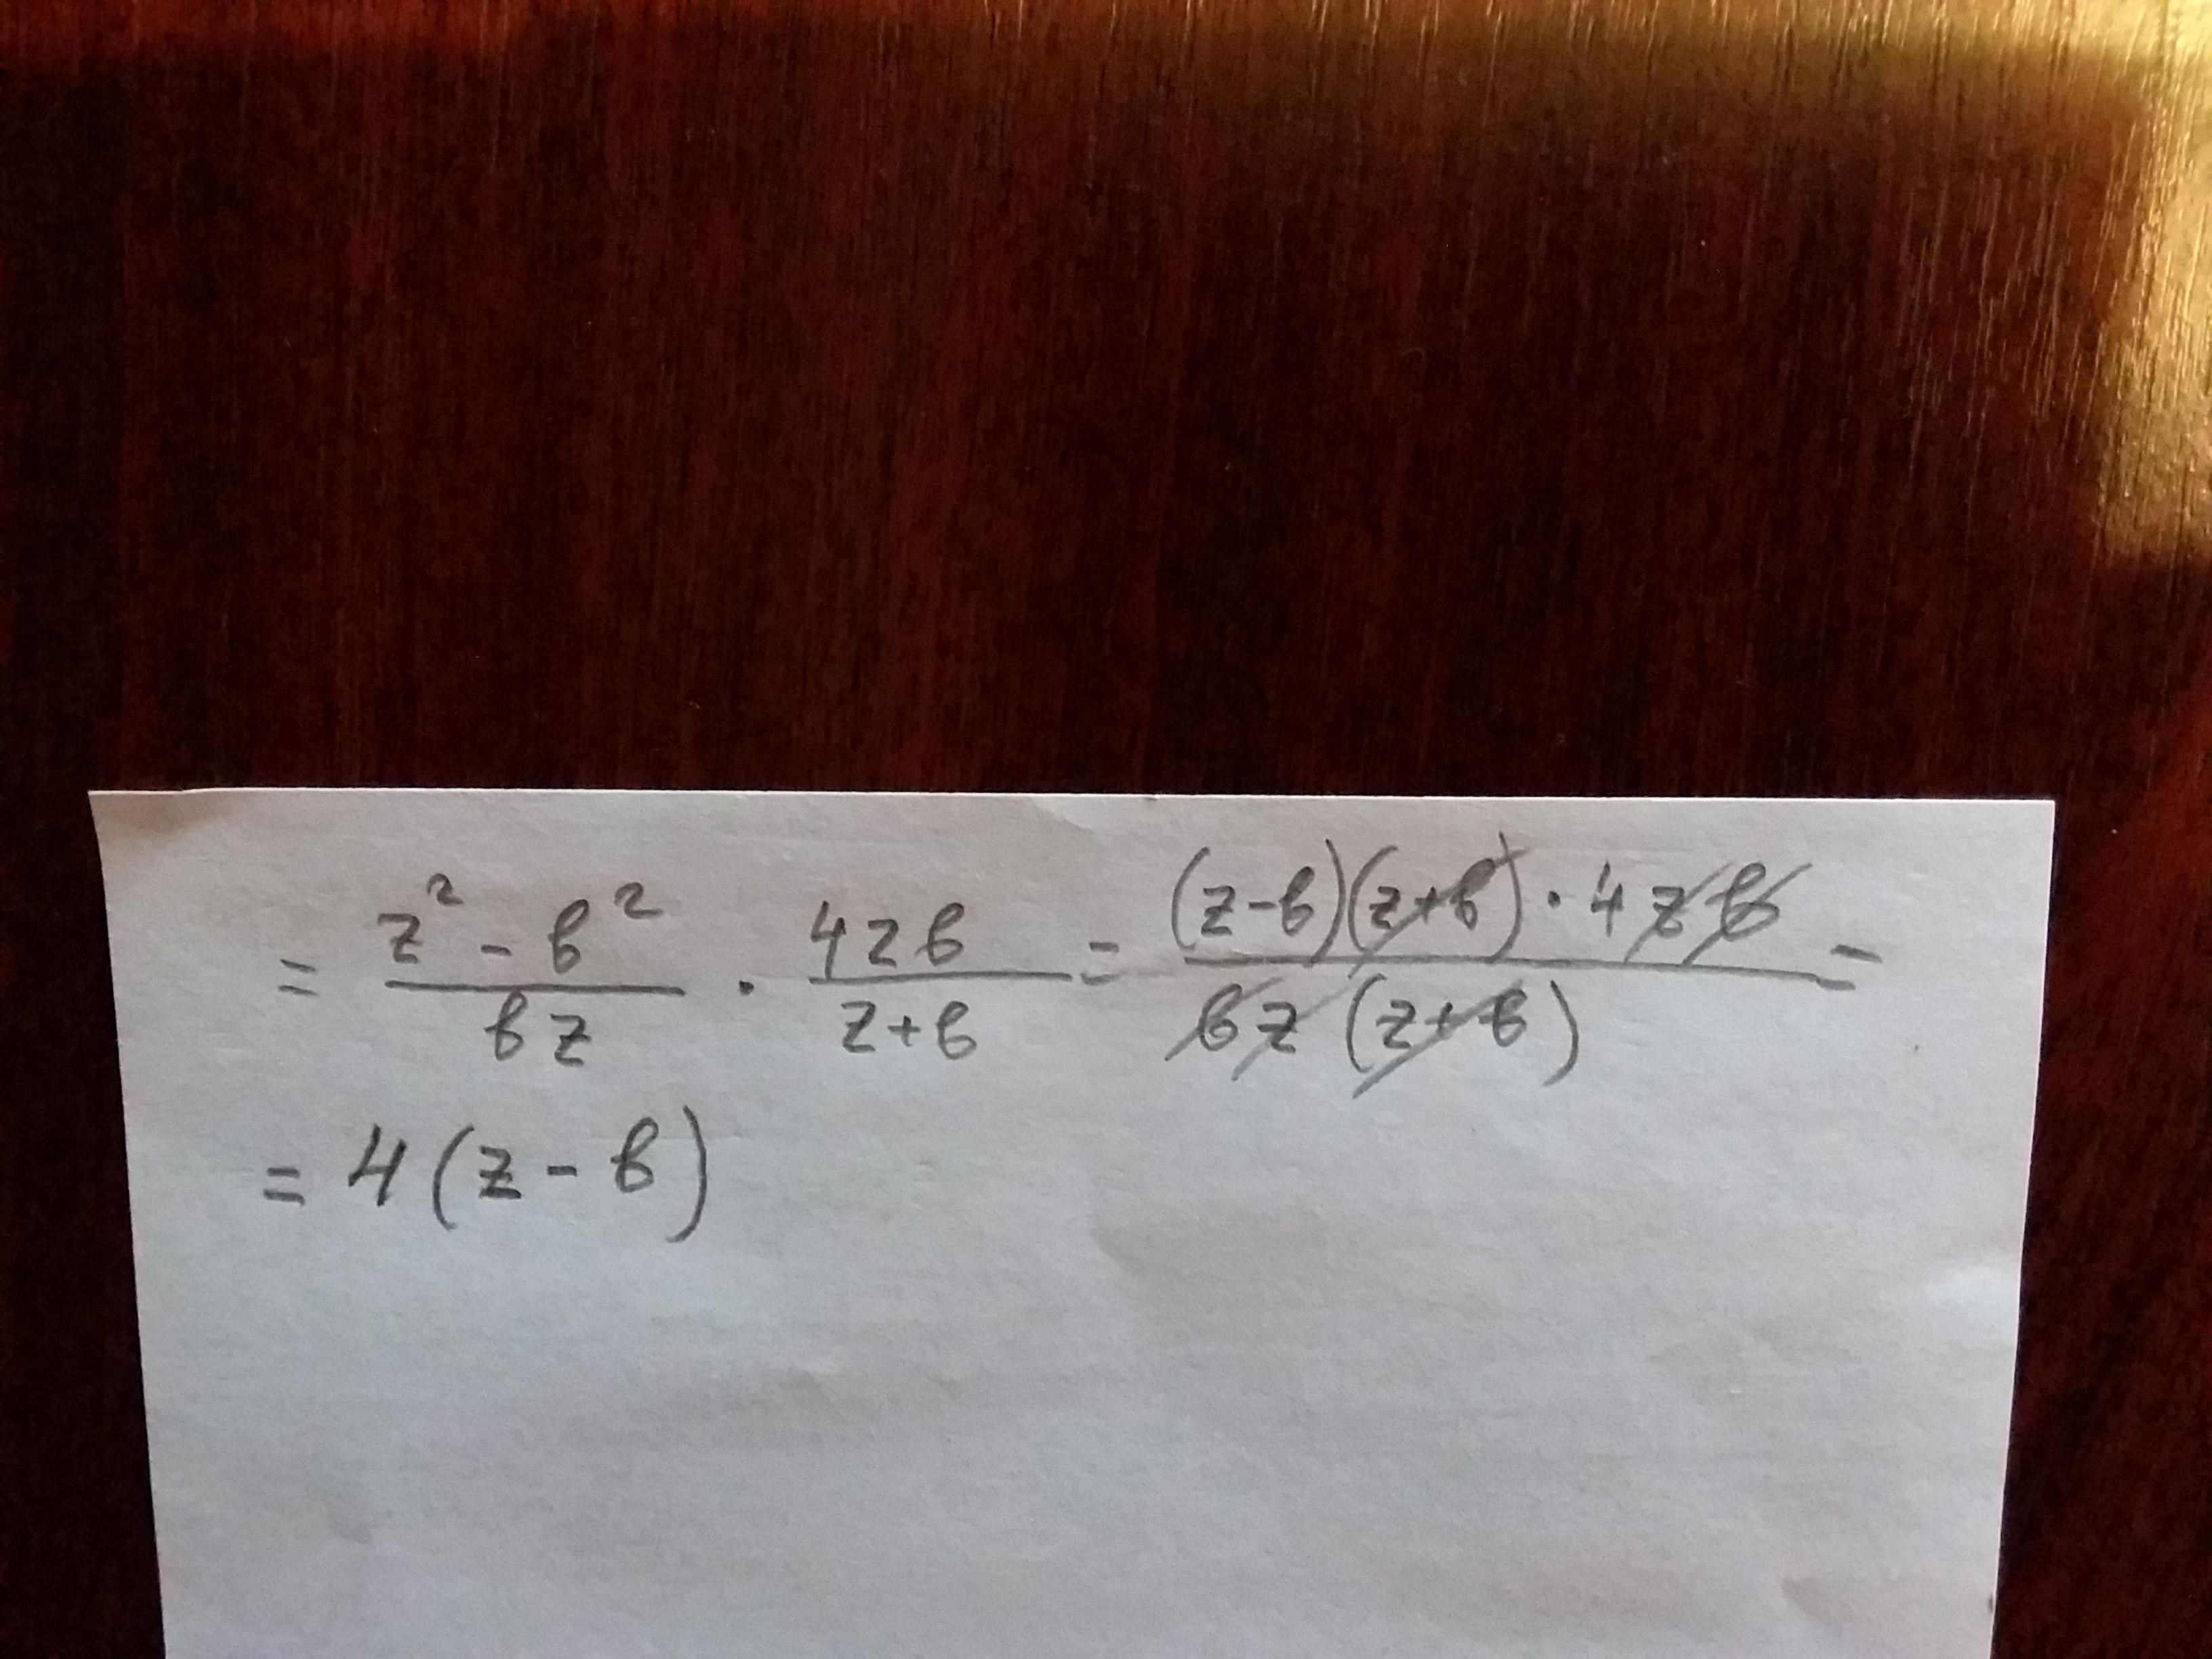 = (z² - b²)/(bz) · (4zb)/(z+b) = ((z-b)(z+b) · 4zb)/(bz(z+b)) =
= 4(z - b)